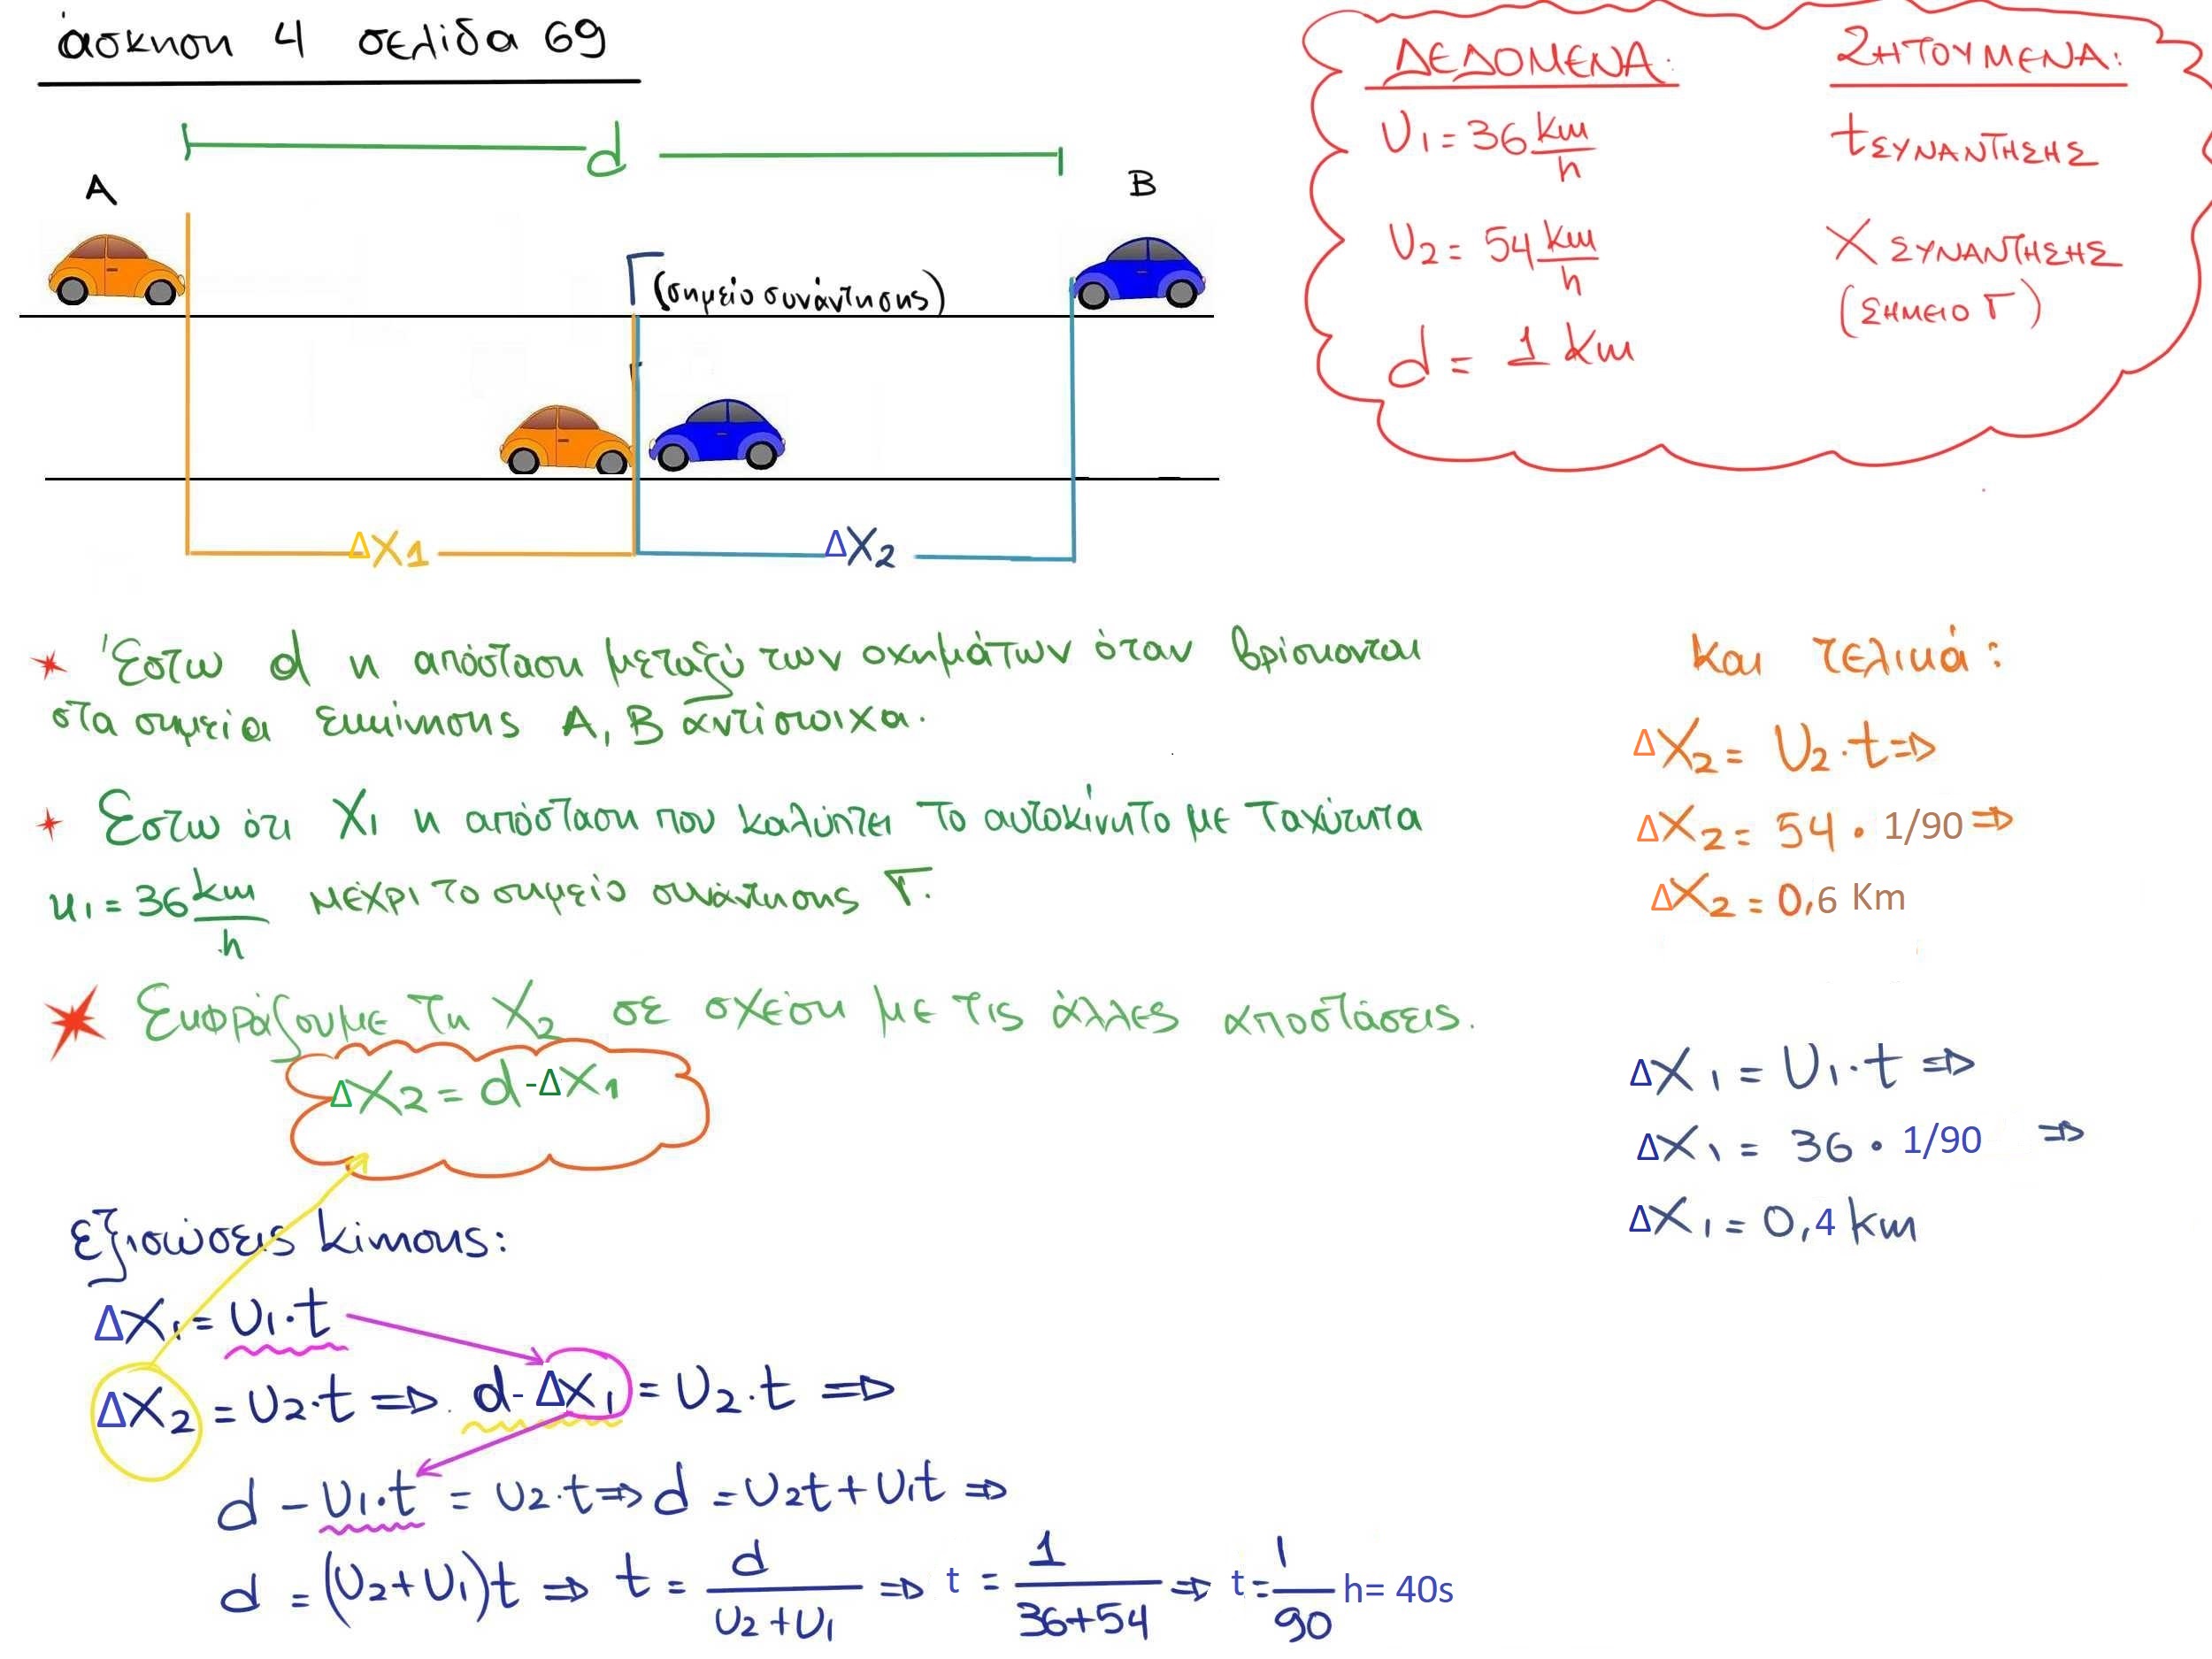 άσκηση 4 σελίδα 69
d
A
B
Γ (σημείο συνάντησης)
ΔX1
ΔX2
ΔΕΔΟΜΕΝΑ:
υ1 = 36 km/h
υ2 = 54 km/h
d = 1 km
ΖΗΤΟΥΜΕΝΑ:
t ΣΥΝΑΝΤΗΣΗΣ
X ΣΥΝΑΝΤΗΣΗΣ
(ΣΗΜΕΙΟ Γ)
* Έστω d η απόσταση μεταξύ των οχημάτων όταν βρίσκονται
στα σημεία εκκίνησης A, B αντίστοιχα.
* Έστω ότι X1 η απόσταση που καλύπτει το αυτοκίνητο με ταχύτητα
υ1 = 36 km/h μέχρι το σημείο συνάντησης Γ.
* Εκφράζουμε τη X2 σε σχέση με τις άλλες αποστάσεις.
ΔX2 = d - ΔX1
εξισώσεις κίνησης:
ΔX1 = υ1·t
ΔX2 = υ2·t ⇒ d - ΔX1 = υ2·t ⇒
d - υ1·t = υ2·t ⇒ d = υ2t + υ1t ⇒
d = (υ2 + υ1)t ⇒ t = d/(υ2 + υ1) ⇒ t = 1/(36+54) ⇒ t = 1/90 h= 40s
και τελικά:
ΔX2 = υ2·t ⇒
ΔX2 = 54 · 1/90 ⇒
ΔX2 = 0,6 Km
ΔX1 = υ1·t ⇒
ΔX1 = 36 · 1/90 ⇒
ΔX1 = 0,4 km